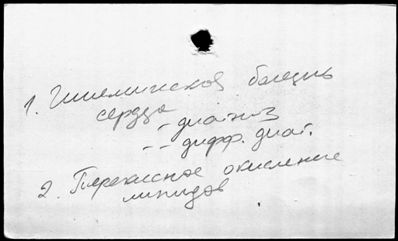 1. Ишемическая болезнь
сердца
- диагноз
- - дифф. диаг.
2. Перекисное окисление
липидов